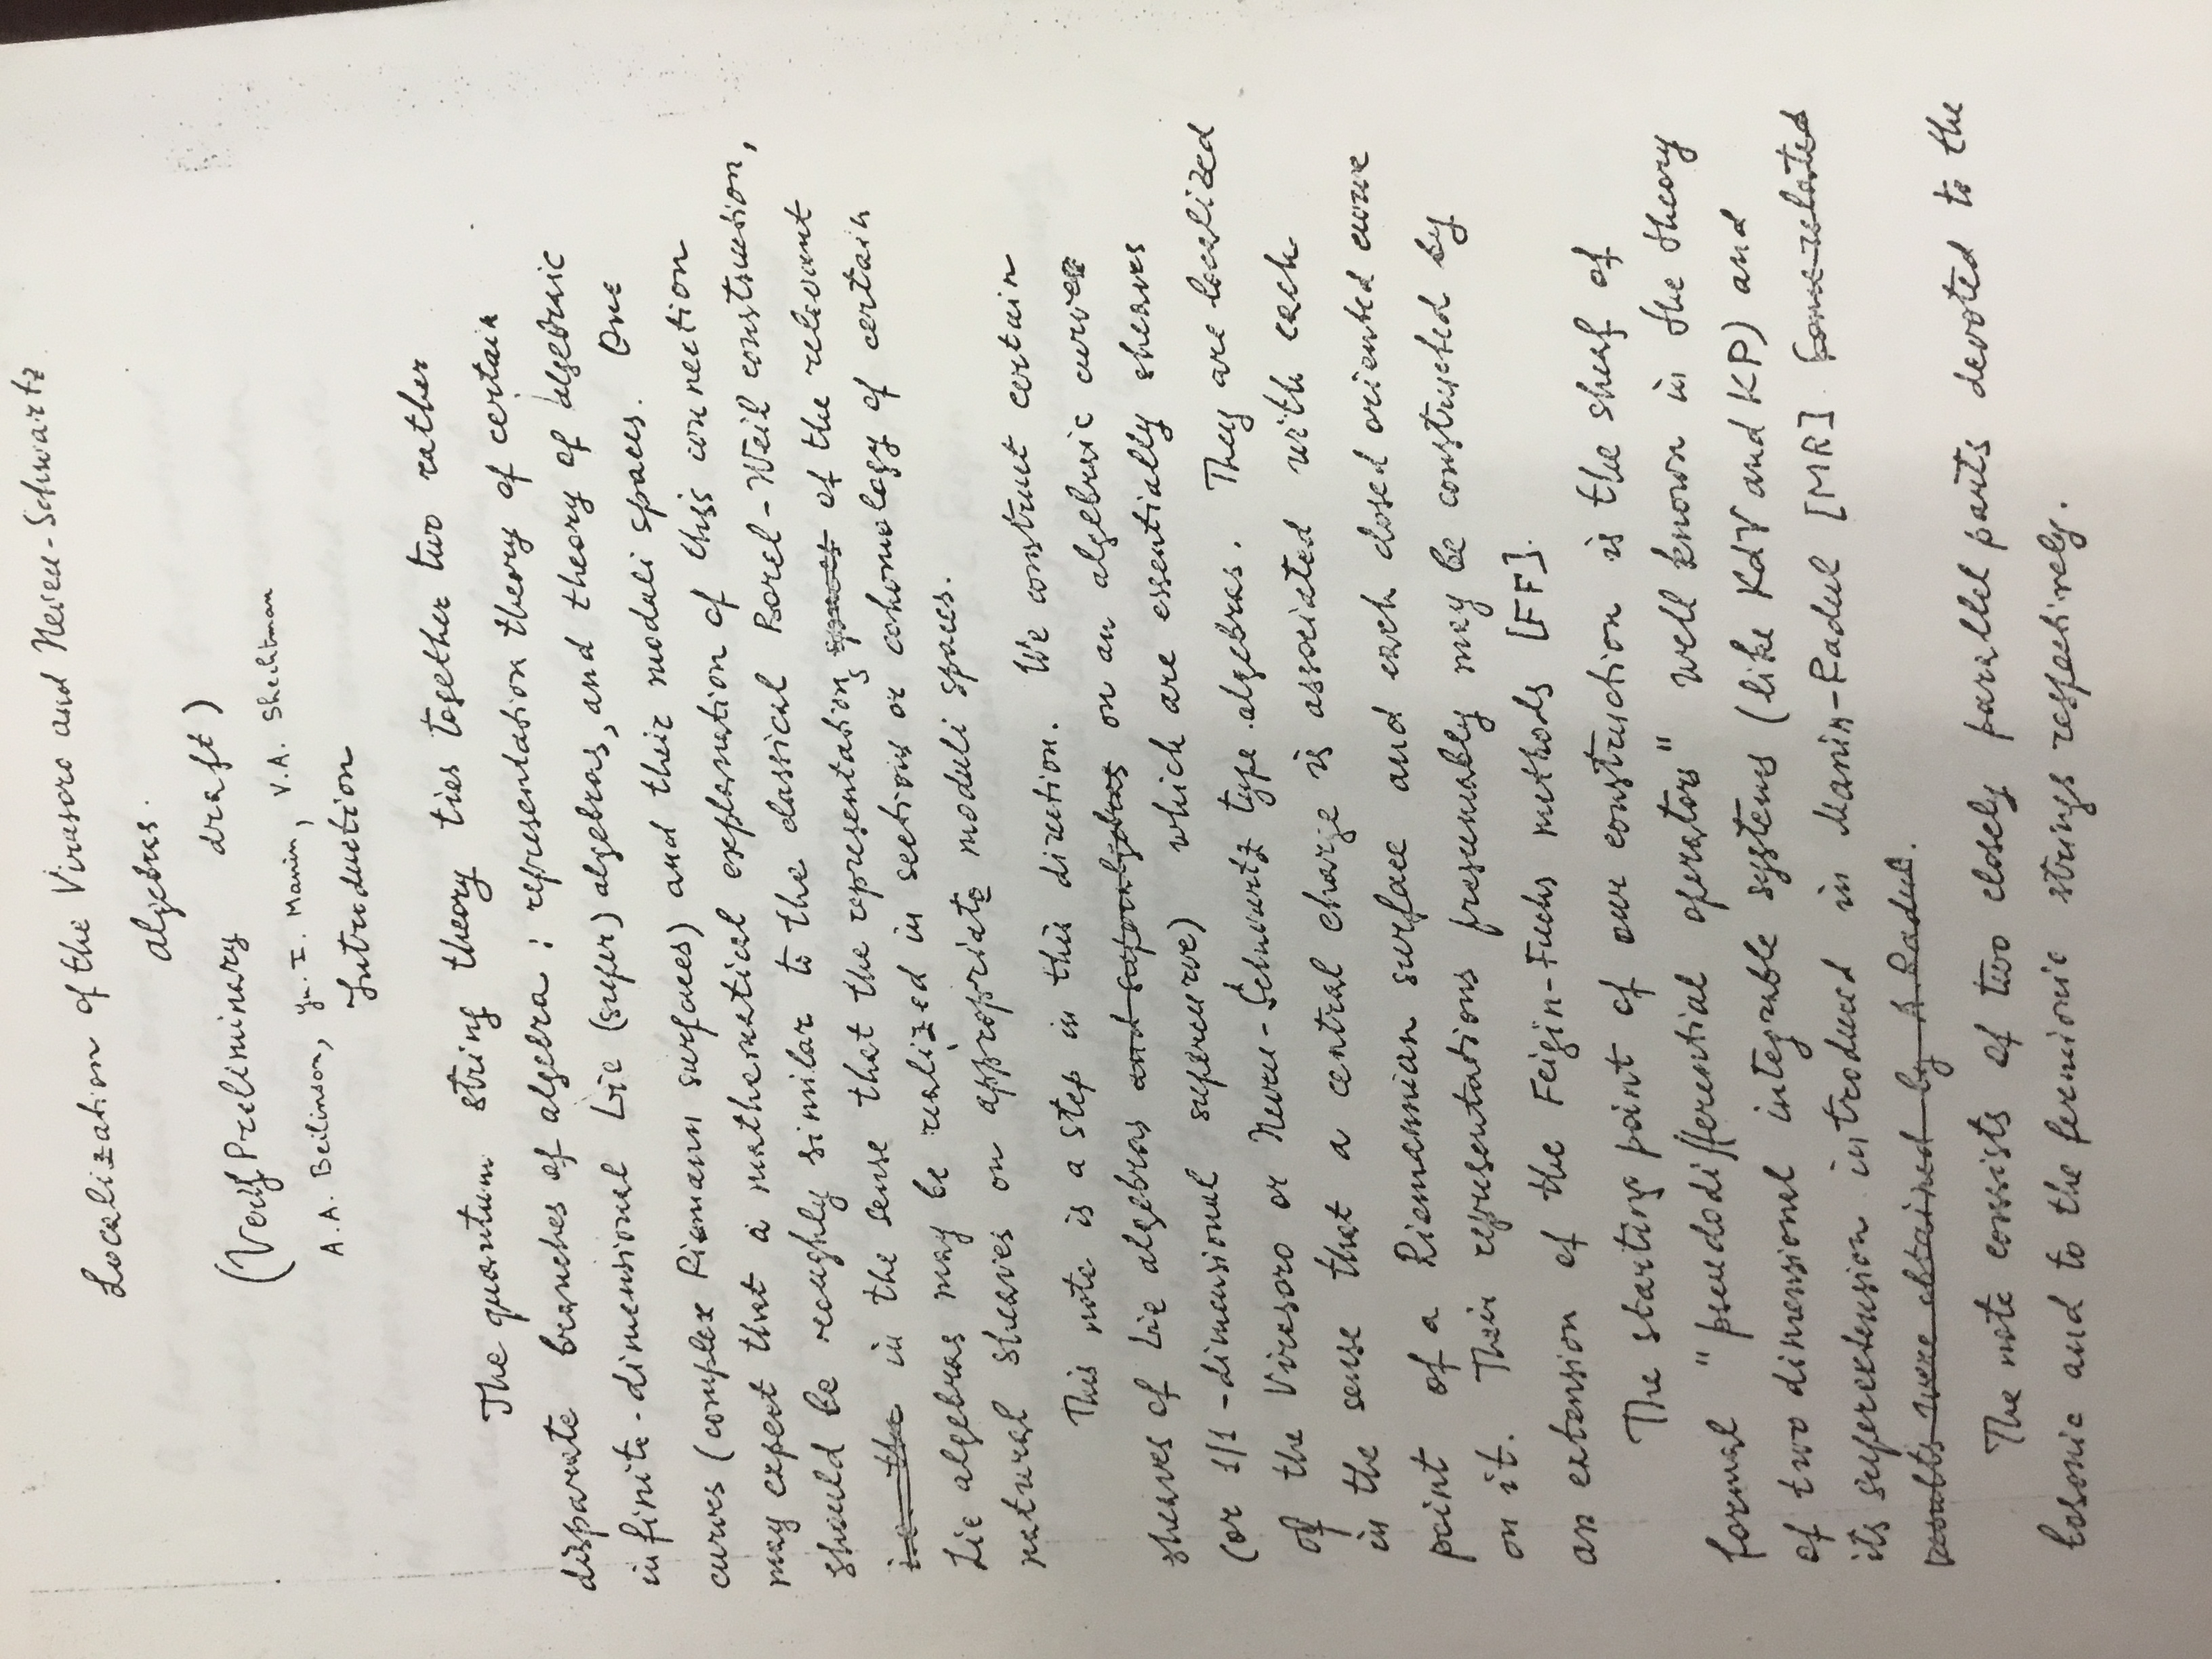 Localization of the Virasoro and Neveu-Schwartz
algebras.
(Very Preliminary draft)
A.A. Beilinson, Yu. I. Manin, V.A. Shechtman
Introduction
The quantum string theory ties together two rather
disparate branches of algebra: representation theory of certain
infinite-dimensional Lie (super) algebras, and theory of algebraic
curves (complex Riemann surfaces) and their moduli spaces. One
may expect that a mathematical explanation of this connection
should be roughly similar to the classical Borel-Weil construction,
in the in the sense that the representations of the relevant
Lie algebras may be realized in sections or cohomology of certain
natural sheaves on appropriate moduli spaces.
This note is a step in this direction. We construct certain
sheaves of Lie algebras and superalgebras on an algebraic curve
(or 1|1-dimensional supercurve) which are essentially sheaves
of the Virasoro or Neveu-Schwartz type algebras. They are localized
in the sense that a central charge is associated with each
point of a Riemannian surface and each closed oriented curve
on it. Their representations presumably may be constructed by
an extension of the Feigin-Fuchs methods [FF].
The starting point of our construction is the sheaf of
formal "pseudodifferential operators" well known in the theory
of two dimensional integrable systems (like KdV and KP) and
its superextension introduced in Manin-Radul [MR]. Some related
results were obtained by A. Radul.
The note consists of two closely parallel parts devoted to the
bosonic and to the fermionic strings respectively.